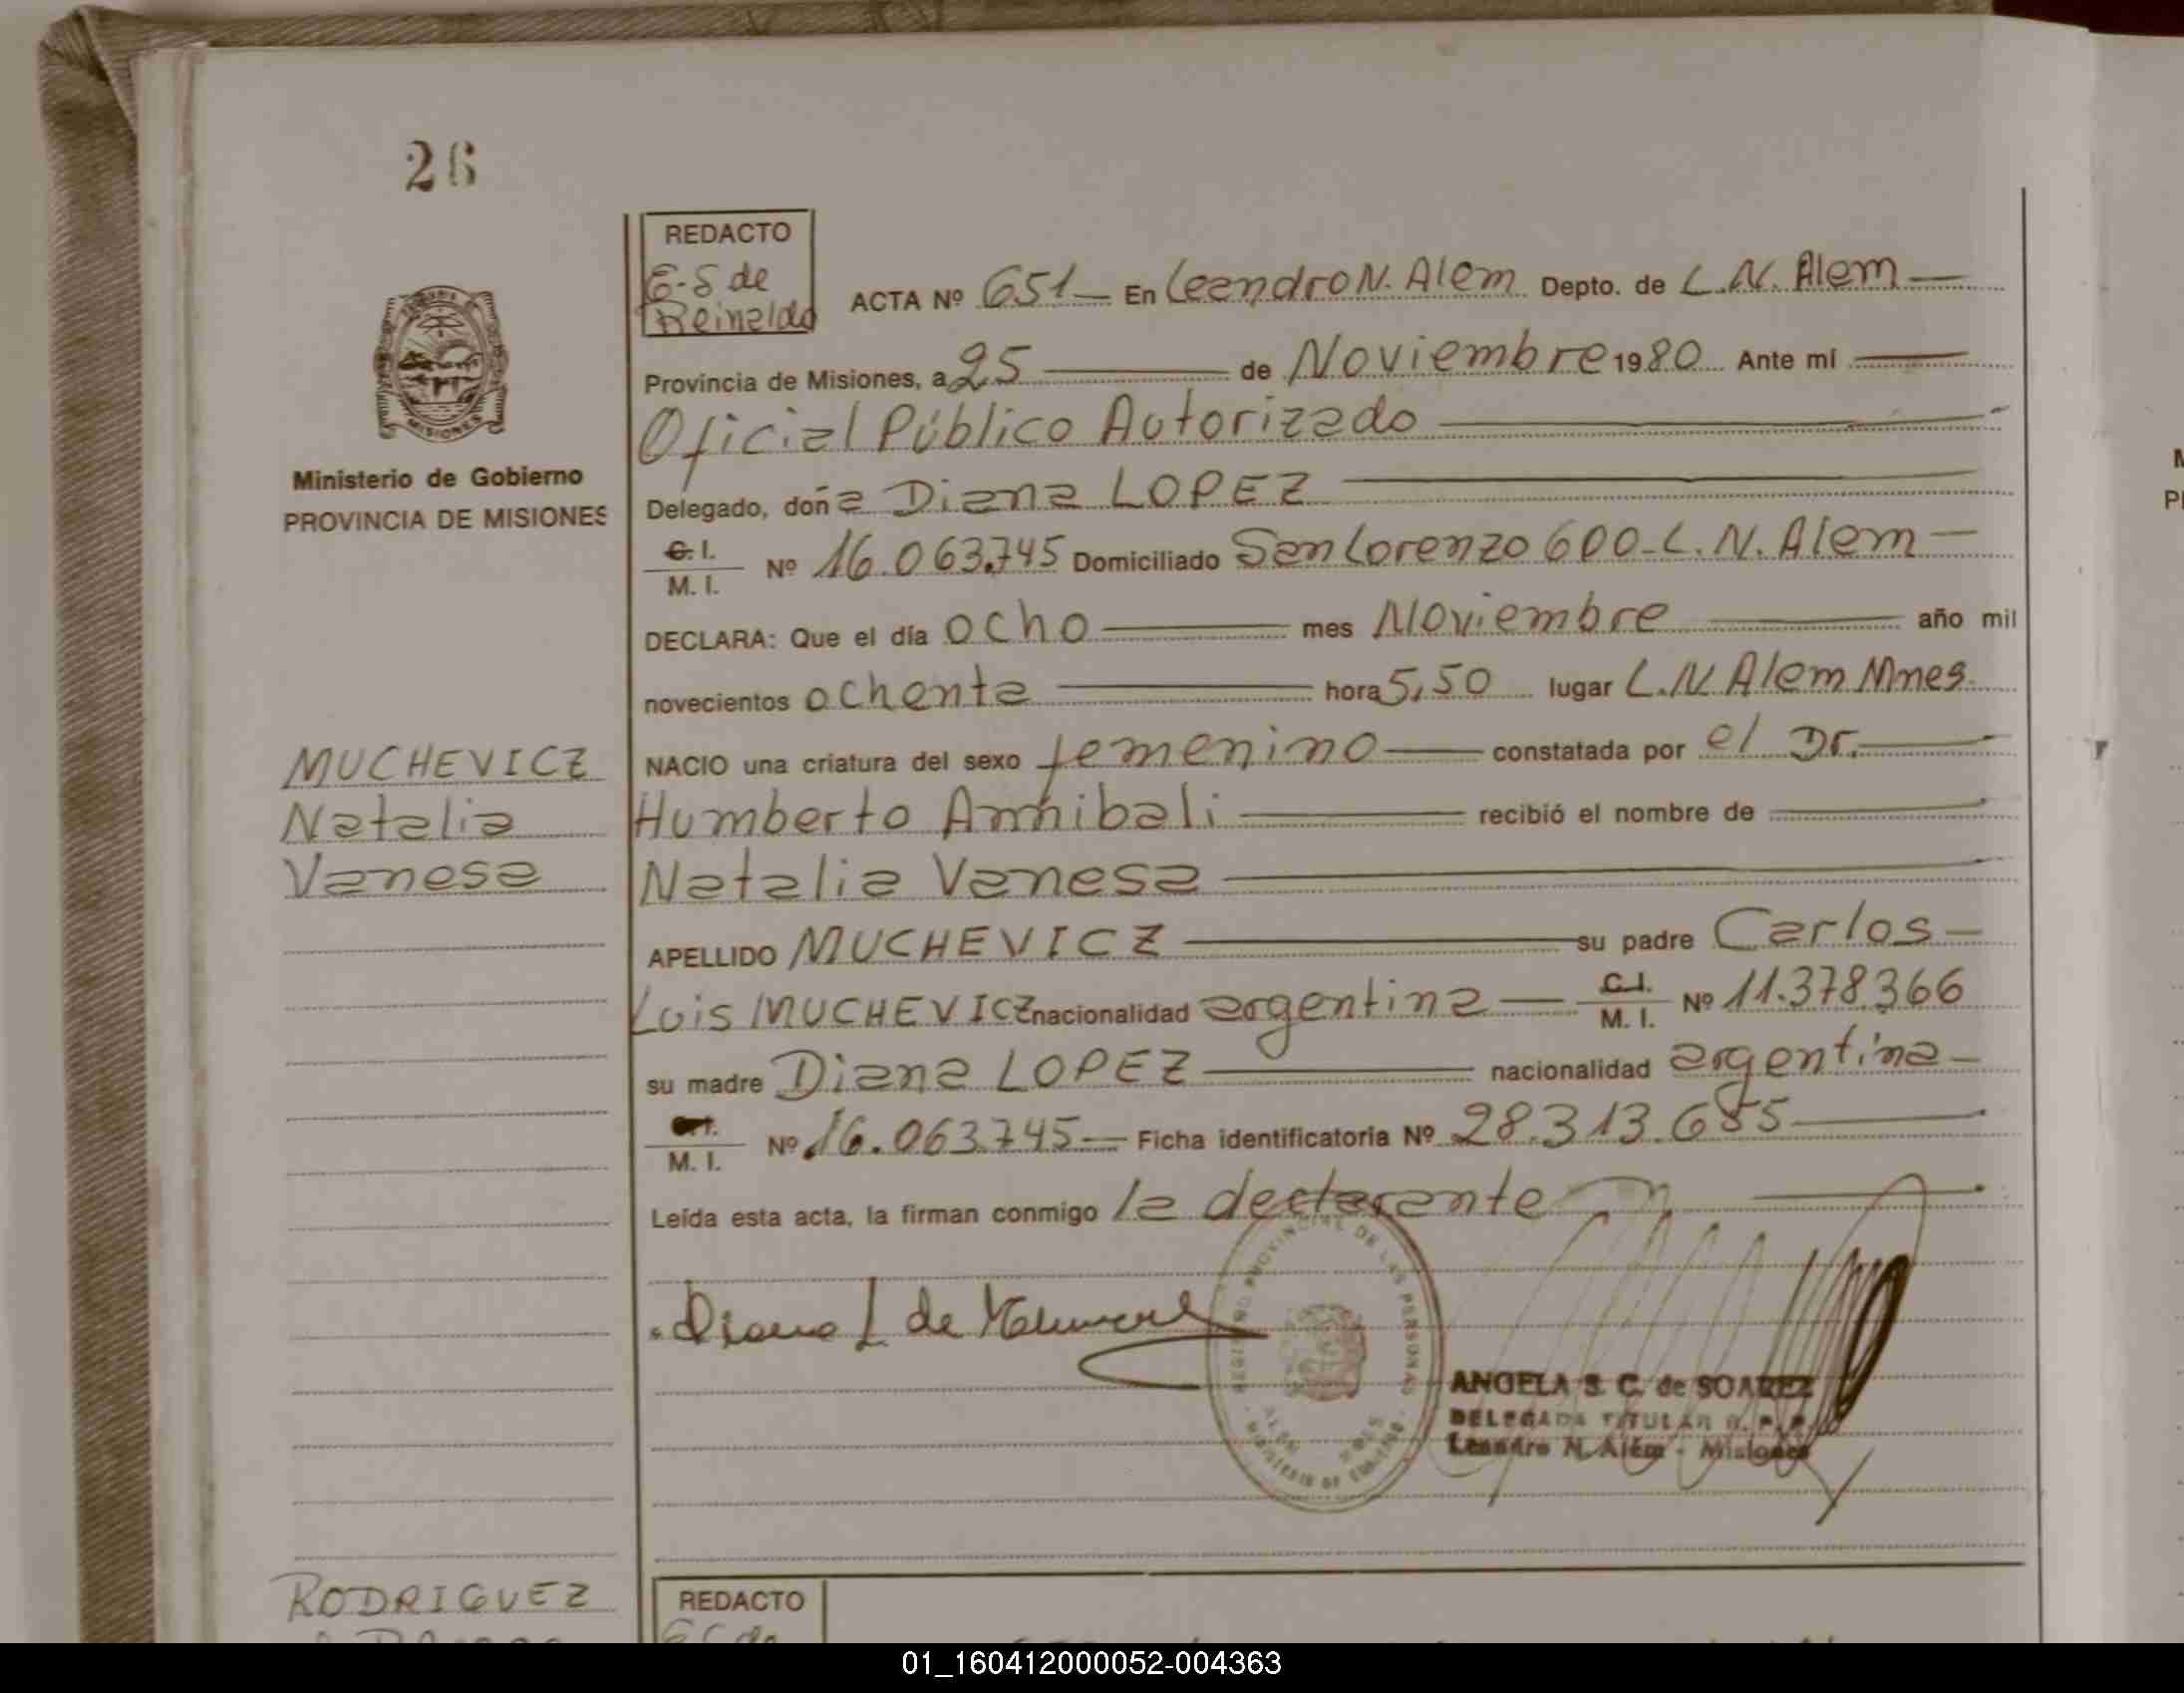 26
REDACTO
E-S de
Reinaldo
ACTA Nº 651 En Leandro N. Alem Depto. de L.N. Alem
Provincia de Misiones, a 25 de Noviembre 1980 Ante mí
Oficial Público Autorizado
Ministerio de Gobierno
PROVINCIA DE MISIONES
MISIONES
Delegado, doña Diana LOPEZ
C. I.
M. I. Nº 16.063.745 Domiciliado San Lorenzo 600-L. N. Alem
DECLARA: Que el día ocho mes Noviembre año mil
novecientos ochenta hora 5,50 lugar L.N Alem Mnes.
NACIO una criatura del sexo femenino constatada por el Dr.
Humberto Annibali recibió el nombre de
Natalia Vanesa
MUCHEVICZ
Natalia
Vanesa
APELLIDO MUCHEVICZ su padre Carlos
Luis MUCHEVICZ nacionalidad argentina C.I. M. I. Nº 11.378.366
su madre Diana LOPEZ nacionalidad argentina
M. I. Nº 16.063.745 Ficha identificatoria Nº 28.313.655
Leída esta acta, la firman conmigo la declarante
Diana L de
PROVINCIAL DE LAS PERSONAS
MINISTERIO DE GOBIERNO
ANGELA S. C. de SOAREZ
DELEGADA TITULAR R. P. P.
Leandro N. Alem - Misiones
RODRIGUEZ
REDACTO
01_160412000052-004363